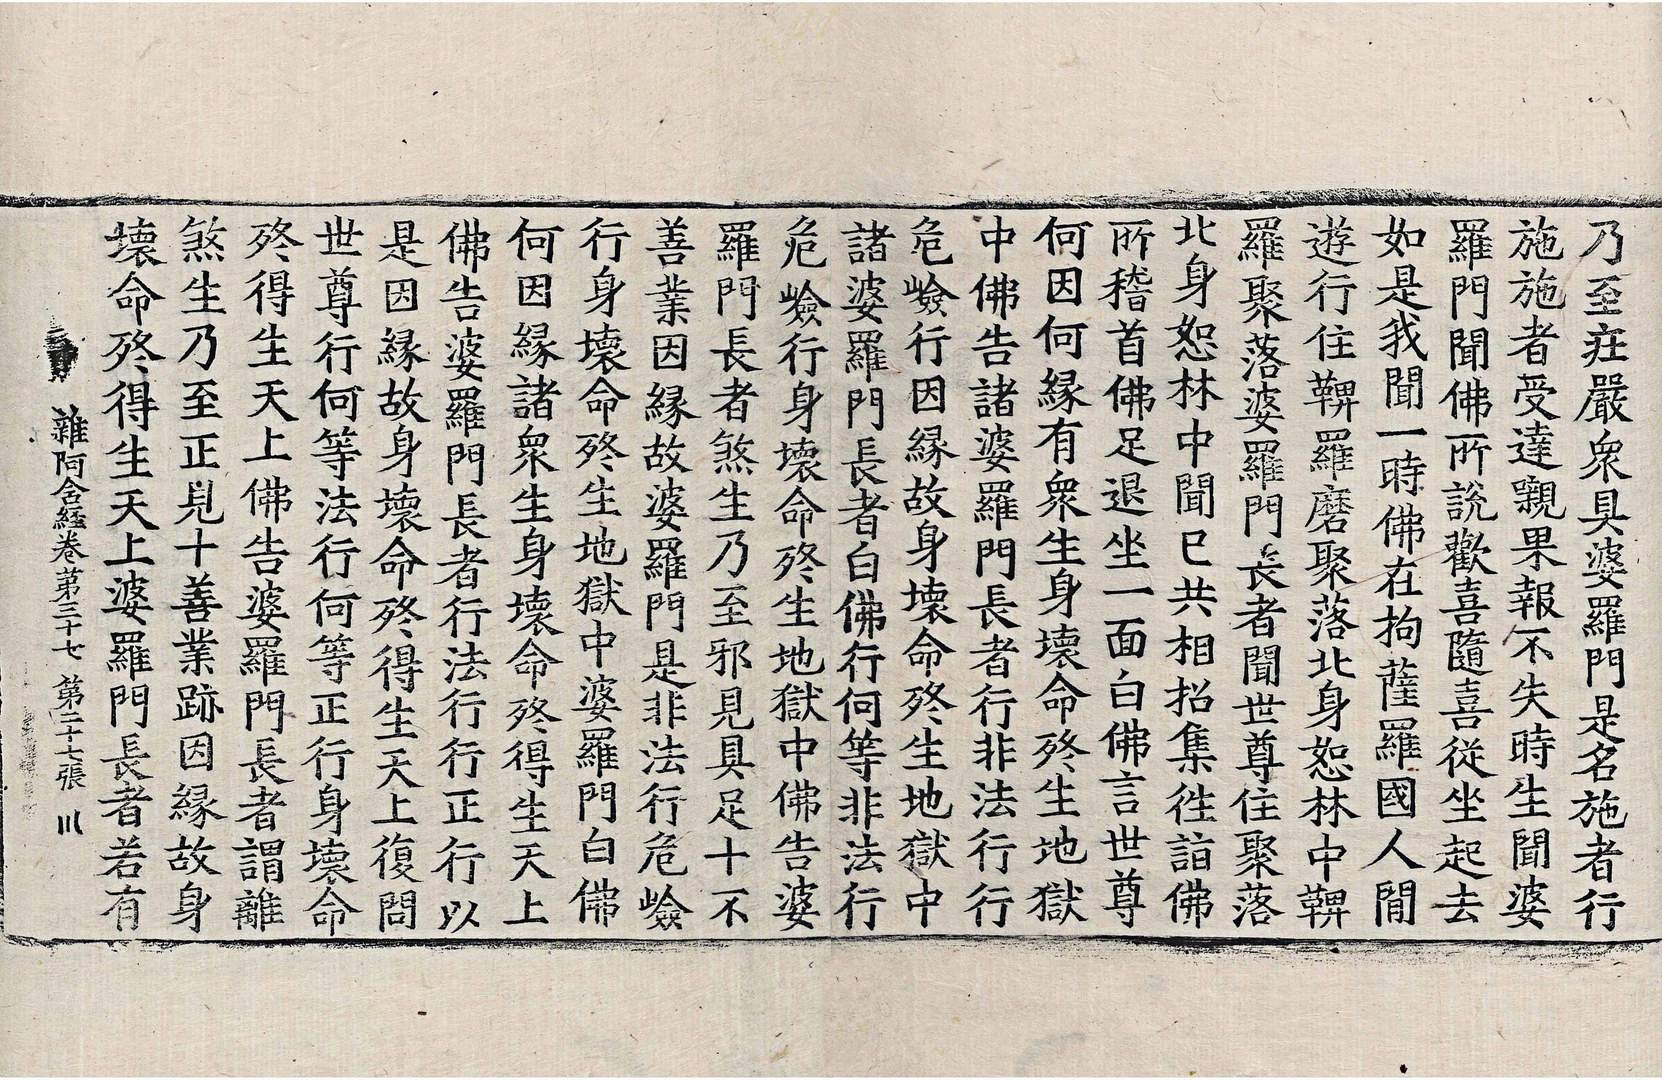 乃至莊嚴眾具婆羅門是名施者行
施施者受達嚫果報不失時生聞婆
羅門聞佛所說歡喜隨喜從坐起去
如是我聞一時佛在拘薩羅國人閒
遊行住鞞羅磨聚落北身恕林中鞞
羅聚落婆羅門長者聞世尊住聚落
北身恕林中聞已共相招集往詣佛
所稽首佛足退坐一面白佛言世尊
何因何緣有眾生身壞命終生地獄
中佛告諸婆羅門長者行非法行行
危嶮行因緣故身壞命終生地獄中
諸婆羅門長者白佛行何等非法行
危嶮行身壞命終生地獄中佛告婆
羅門長者煞生乃至邪見具足十不
善業因緣故婆羅門是非法行危嶮
行身壞命終生地獄中婆羅門白佛
何因緣諸眾生身壞命終得生天上
佛告婆羅門長者行法行行正行以
是因緣故身壞命終得生天上復問
世尊行何等法行何等正行身壞命
終得生天上佛告婆羅門長者謂離
煞生乃至正見十善業跡因緣故身
壞命終得生天上婆羅門長者若有
雜阿含經卷第三十七 第二十七張 川